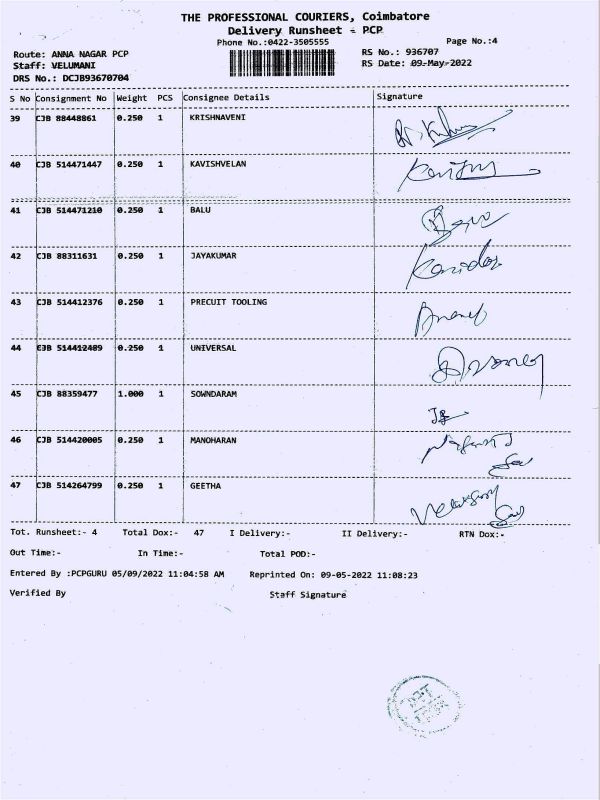 THE PROFESSIONAL COURIERS, Coimbatore
Delivery Runsheet - PCP
Phone No.:0422-3505555 Page No.:4
Route: ANNA NAGAR PCP RS No.: 936707
Staff: VELUMANI RS Date: 09-May-2022
DRS No.: DCJB93670704
S No Consignment No Weight PCS Consignee Details Signature
39 CJB 88448861 0.250 1 KRISHNAVENI
40 CJB 514471447 0.250 1 KAVISHVELAN
41 CJB 514471210 0.250 1 BALU
42 CJB 88311631 0.250 1 JAYAKUMAR
43 CJB 514412376 0.250 1 PRECUIT TOOLING
44 CJB 514412489 0.250 1 UNIVERSAL
45 CJB 88359477 1.000 1 SOWNDARAM
46 CJB 514420005 0.250 1 MANOHARAN
47 CJB 514264799 0.250 1 GEETHA
Tot. Runsheet:- 4 Total Dox:- 47 I Delivery:- II Delivery:- RTN Dox:-
Out Time:- In Time:- Total POD:-
Entered By :PCPGURU 05/09/2022 11:04:58 AM Reprinted On: 09-05-2022 11:08:23
Verified By Staff Signature